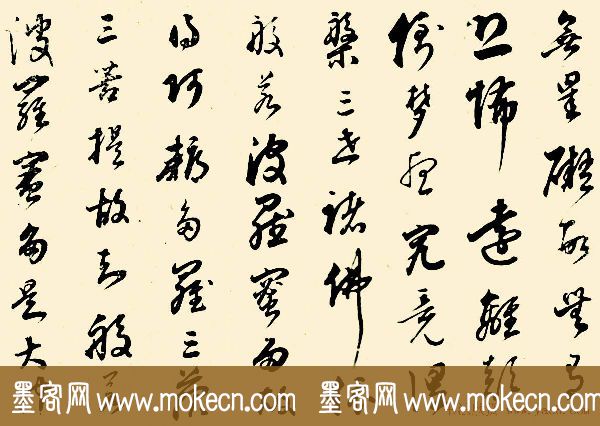 無罣礙故無有
恐怖遠離顛
倒夢想究竟涅
槃三世諸佛依
般若波羅蜜多故
得阿耨多羅三藐
三菩提故知般若
波羅蜜多是大神
墨客网 www.mokecn.com 墨客网 www.mokecn.com